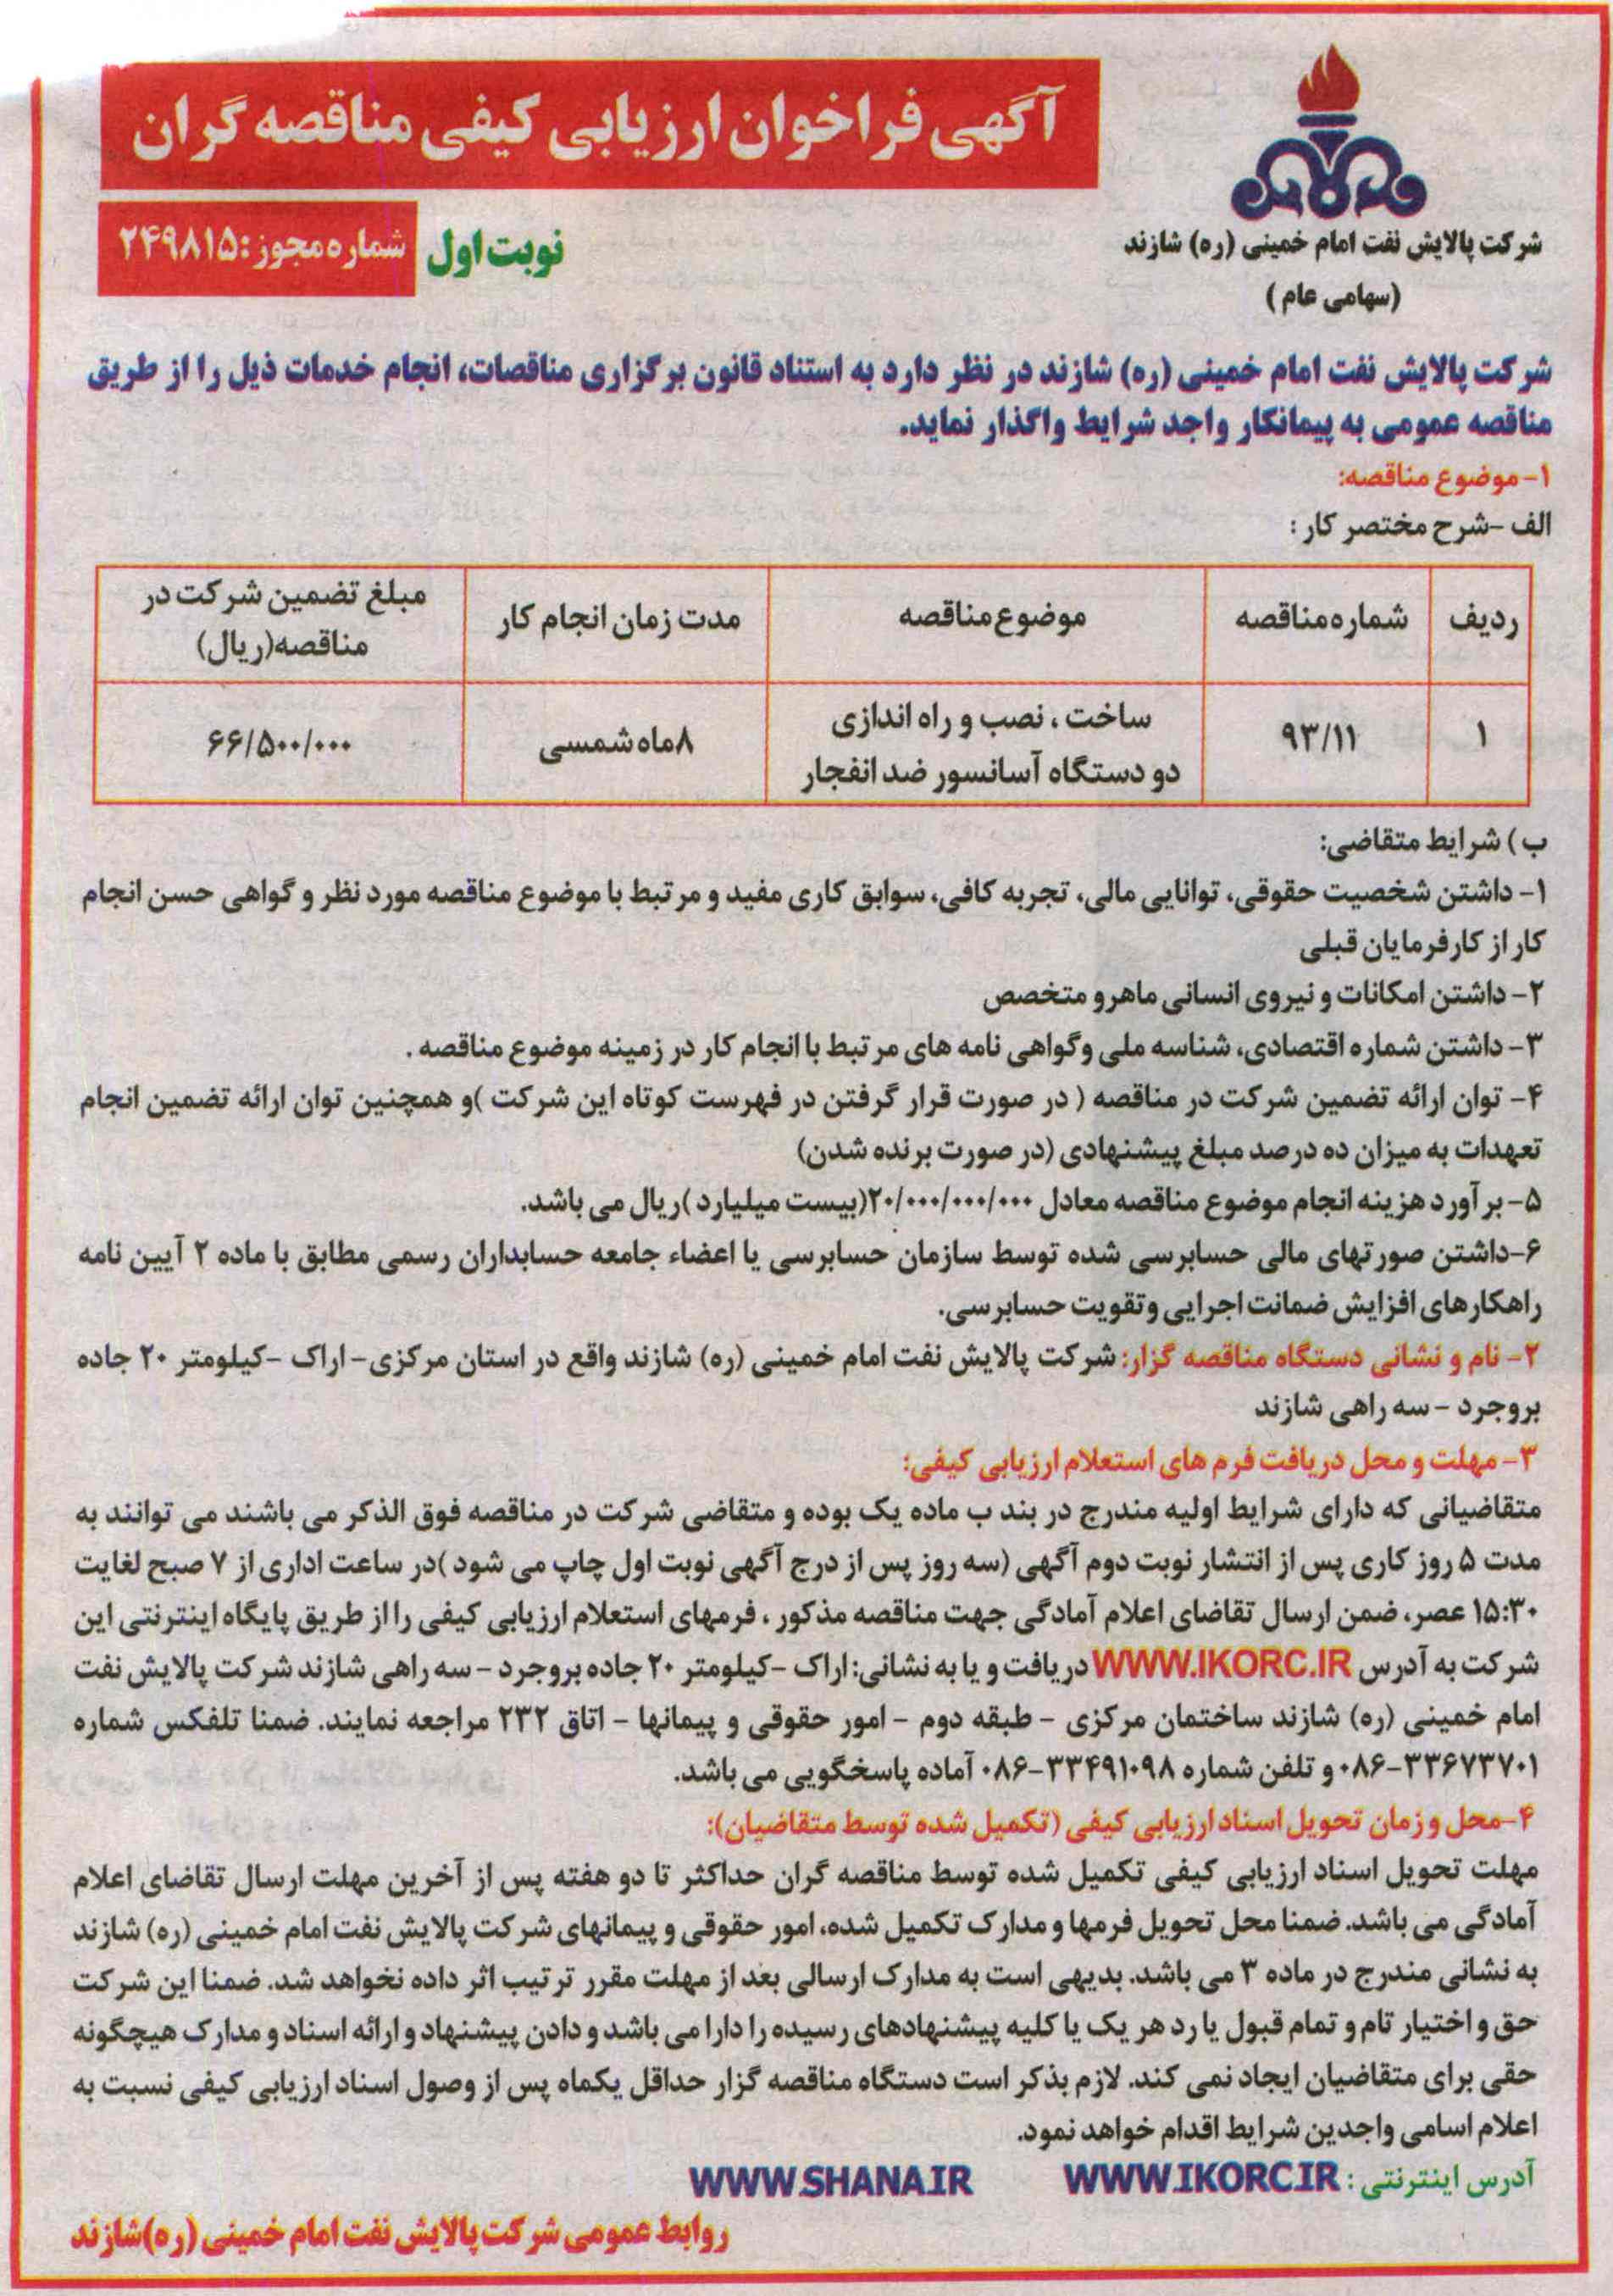 آگهی فراخوان ارزیابی کیفی مناقصه گران
شرکت پالایش نفت امام خمینی (ره) شازند
(سهامی عام)
نوبت اول
شماره مجوز: ۲۴۹۸۱۵
شرکت پالایش نفت امام خمینی (ره) شازند در نظر دارد به استناد قانون برگزاری مناقصات، انجام خدمات ذیل را از طریق
مناقصه عمومی به پیمانکار واجد شرایط واگذار نماید.
۱- موضوع مناقصه:
الف -شرح مختصر کار :
ردیف
شماره مناقصه
موضوع مناقصه
مدت زمان انجام کار
مبلغ تضمین شرکت در
مناقصه(ریال)
۱
۹۳/۱۱
ساخت ، نصب و راه اندازی
دو دستگاه آسانسور ضد انفجار
۸ماه شمسی
۶۶/۵۰۰/۰۰۰
ب ) شرایط متقاضی:
۱- داشتن شخصیت حقوقی، توانایی مالی، تجربه کافی، سوابق کاری مفید و مرتبط با موضوع مناقصه مورد نظر و گواهی حسن انجام
کار از کارفرمایان قبلی
۲- داشتن امکانات و نیروی انسانی ماهر و متخصص
۳- داشتن شماره اقتصادی، شناسه ملی وگواهی نامه های مرتبط با انجام کار در زمینه موضوع مناقصه .
۴- توان ارائه تضمین شرکت در مناقصه ( در صورت قرار گرفتن در فهرست کوتاه این شرکت )و همچنین توان ارائه تضمین انجام
تعهدات به میزان ده درصد مبلغ پیشنهادی (در صورت برنده شدن)
۵- بر آورد هزینه انجام موضوع مناقصه معادل ۲۰/۰۰۰/۰۰۰/۰۰۰(بیست میلیارد )ریال می باشد.
۶-داشتن صورتهای مالی حسابرسی شده توسط سازمان حسابرسی یا اعضاء جامعه حسابداران رسمی مطابق با ماده ۲ آیین نامه
راهکارهای افزایش ضمانت اجرایی وتقویت حسابرسی.
۲- نام و نشانی دستگاه مناقصه گزار: شرکت پالایش نفت امام خمینی (ره) شازند واقع در استان مرکزی- اراک -کیلومتر ۲۰ جاده
بروجرد - سه راهی شازند
۳- مهلت و محل دریافت فرم های استعلام ارزیابی کیفی:
متقاضیانی که دارای شرایط اولیه مندرج در بند ب ماده یک بوده و متقاضی شرکت در مناقصه فوق الذکر می باشند می توانند به
مدت ۵ روز کاری پس از انتشار نوبت دوم آگهی (سه روز پس از درج آگهی نوبت اول چاپ می شود )در ساعت اداری از ۷ صبح لغایت
۱۵:۳۰ عصر، ضمن ارسال تقاضای اعلام آمادگی جهت مناقصه مذکور ، فرمهای استعلام ارزیابی کیفی را از طریق پایگاه اینترنتی این
شرکت به آدرس WWW.IKORC.IR دریافت و یا به نشانی: اراک -کیلومتر ۲۰ جاده بروجرد - سه راهی شازند شرکت پالایش نفت
امام خمینی (ره) شازند ساختمان مرکزی - طبقه دوم - امور حقوقی و پیمانها - اتاق ۲۳۲ مراجعه نمایند. ضمنا تلفکس شماره
۰۸۶-۳۳۶۷۳۷۰۱ و تلفن شماره ۰۸۶-۳۳۴۹۱۰۹۸ آماده پاسخگویی می باشد.
۴-محل و زمان تحویل اسناد ارزیابی کیفی (تکمیل شده توسط متقاضیان):
مهلت تحویل اسناد ارزیابی کیفی تکمیل شده توسط مناقصه گران حداکثر تا دو هفته پس از آخرین مهلت ارسال تقاضای اعلام
آمادگی می باشد. ضمنا محل تحویل فرمها و مدارک تکمیل شده، امور حقوقی و پیمانهای شرکت پالایش نفت امام خمینی (ره) شازند
به نشانی مندرج در ماده ۳ می باشد. بدیهی است به مدارک ارسالی بعد از مهلت مقرر ترتیب اثر داده نخواهد شد. ضمنا این شرکت
حق و اختیار تام و تمام قبول یا رد هر یک یا کلیه پیشنهادهای رسیده را دارا می باشد و دادن پیشنهاد و ارائه اسناد و مدارک هیچگونه
حقی برای متقاضیان ایجاد نمی کند. لازم بذکر است دستگاه مناقصه گزار حداقل یکماه پس از وصول اسناد ارزیابی کیفی نسبت به
اعلام اسامی واجدین شرایط اقدام خواهد نمود.
آدرس اینترنتی : WWW.IKORC.IR WWW.SHANA.IR
روابط عمومی شرکت پالایش نفت امام خمینی (ره)شازند